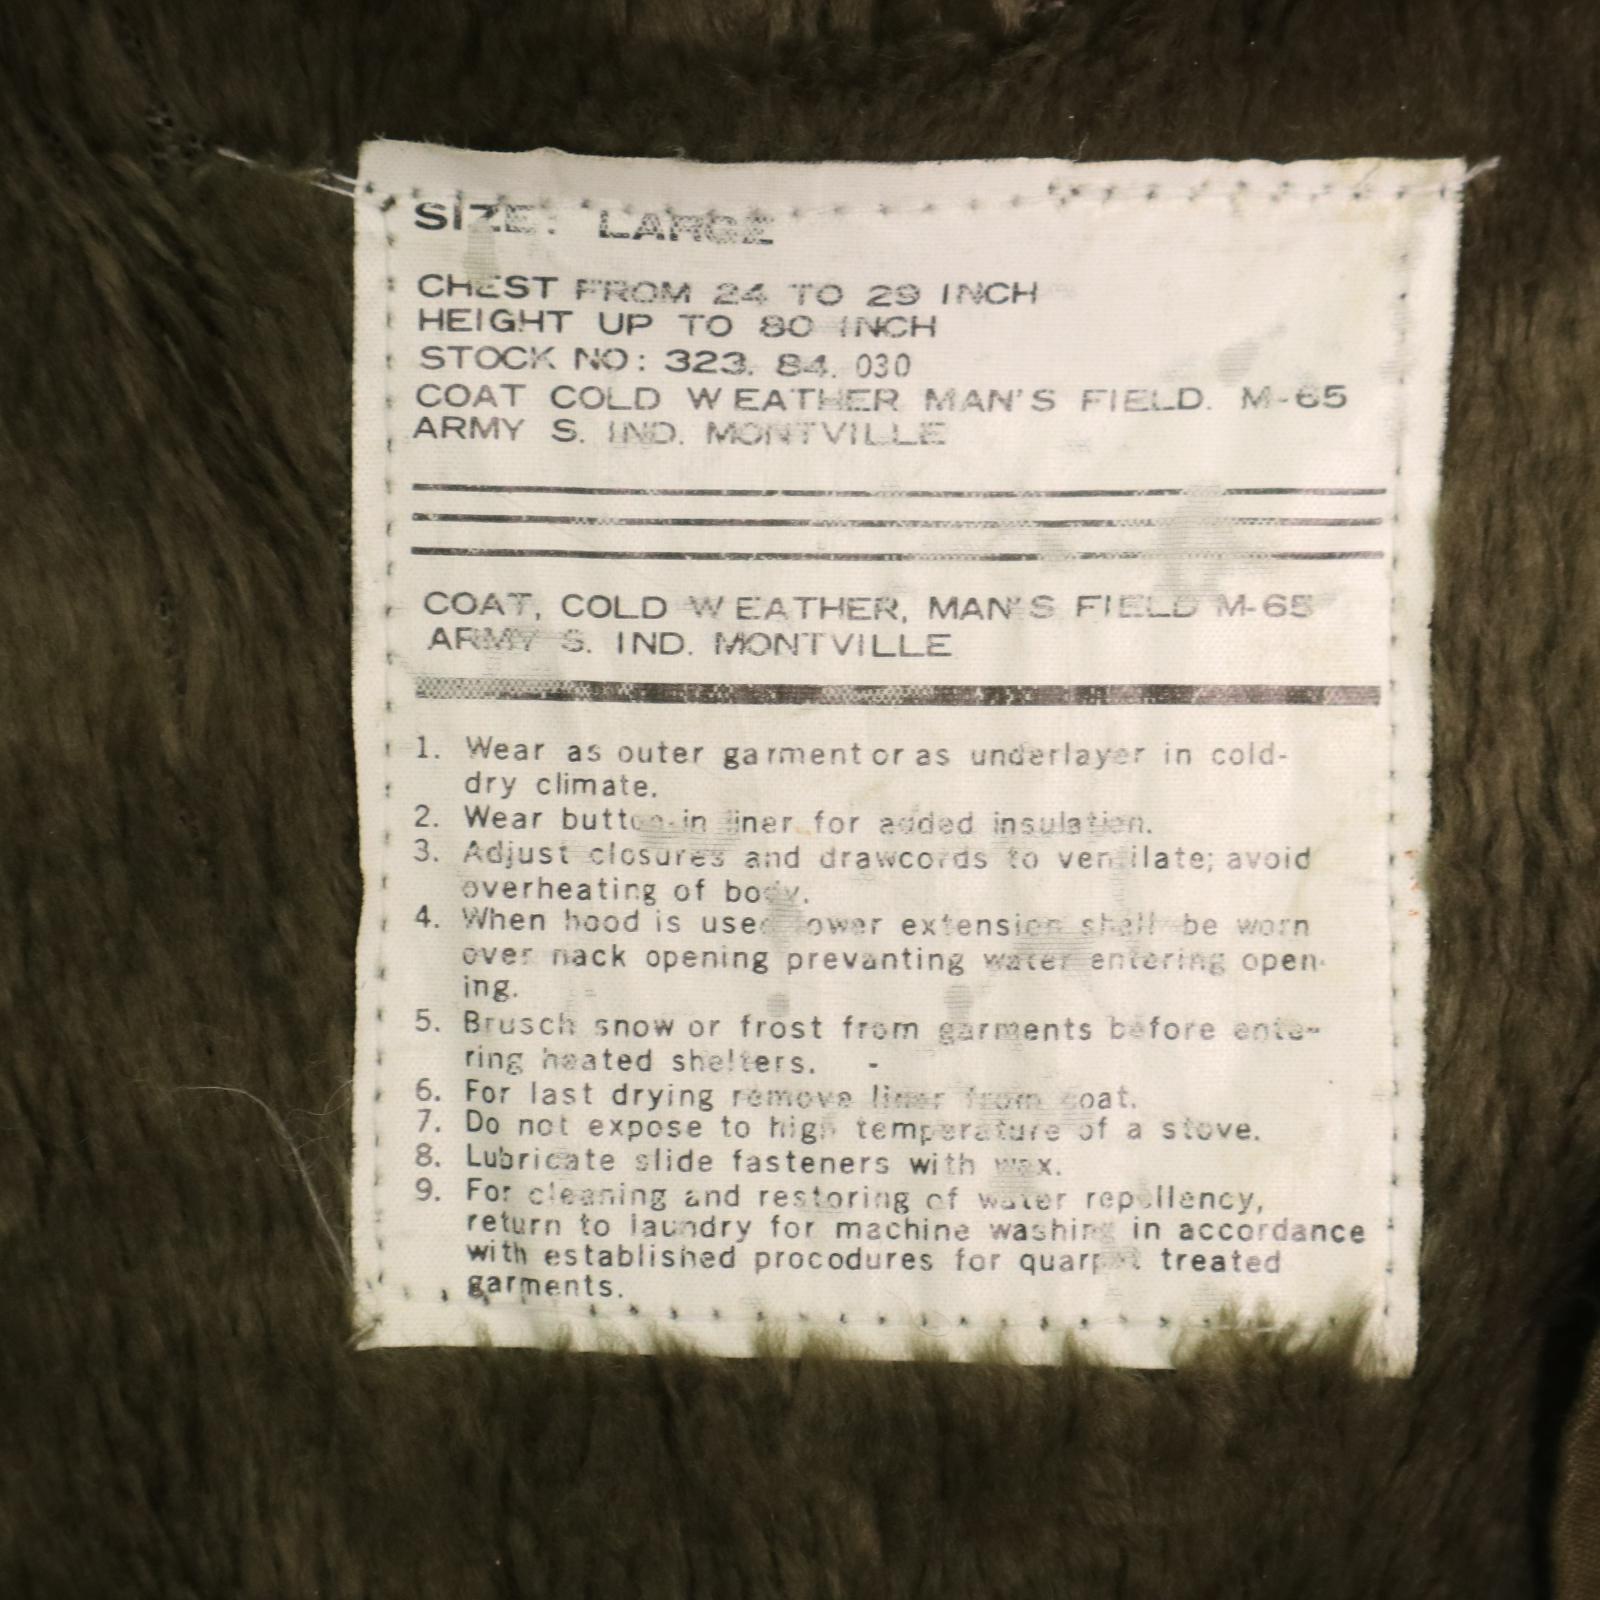 SIZE: LARGE
CHEST FROM 24 TO 29 INCH
HEIGHT UP TO 80 INCH
STOCK NO: 323. 84. 030
COAT COLD WEATHER MAN'S FIELD. M-65
ARMY S. IND. MONTVILLE
COAT, COLD WEATHER, MAN'S FIELD M-65
ARMY S. IND. MONTVILLE
1. Wear as outer garment or as underlayer in cold-
dry climate.
2. Wear button-in liner for added insulation.
3. Adjust closures and drawcords to ventilate; avoid
overheating of body.
4. When hood is used lower extension shall be worn
over nack opening prevanting water entering open-
ing.
5. Brusch snow or frost from garments before ente-
ring heated shelters. -
6. For last drying remove liner from coat.
7. Do not expose to high temperature of a stove.
8. Lubricate slide fasteners with wax.
9. For cleaning and restoring of water repellency,
return to laundry for machine washing in accordance
with established procodures for quarpel treated
garments.